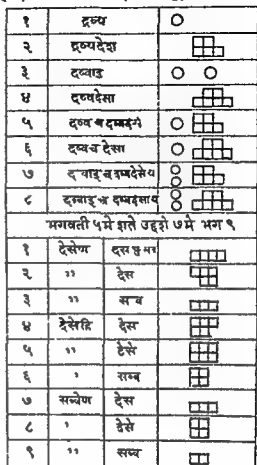 १ द्रव्य
२ द्रव्यदेश
३ दव्वाइ
४ दव्वदेसा
५ दव्व च दव्वदेसे
६ दव्व च देसा
७ दव्वाइ च दव्वदेसेय
८ दव्वाइ च दव्वदेसाय
भगवती ५मे शते उद्देशे ७मे भग ९
१ देसेण देस फुसइ
२ ,, देस
३ ,, सव्व
४ देसेहि देस
५ ,, देसे
६ , सव्व
७ सव्वेण देस
८ , देसे
९ ,, सव्व